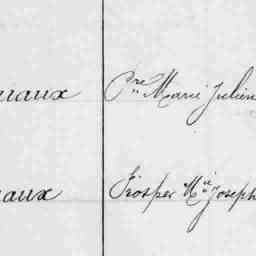 Pre Marie Julien
Prosper Mie Joseph